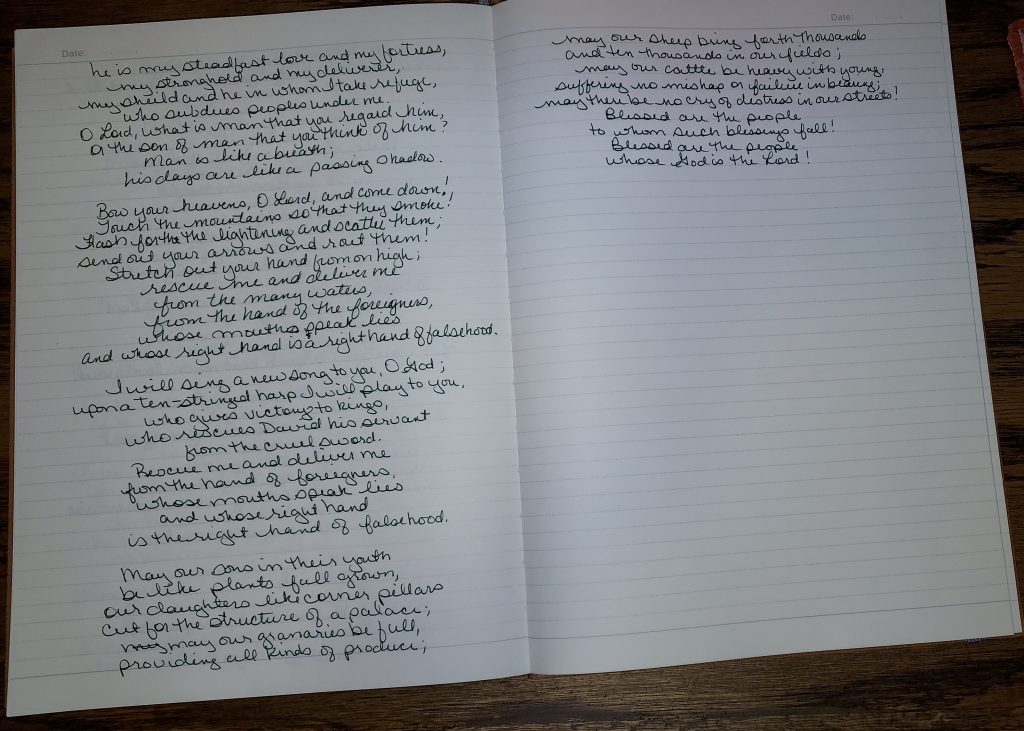 Date:
he is my steadfast love and my fortress,
my stronghold and my deliverer,
my sheild and he in whom I take refuge,
who subdues peoples under me.
O Lord, what is man that you regard him,
or the son of man that you think of him?
Man is like a breath;
his days are like a passing shadow.
Bow your heavens, O Lord, and come down!
Touch the mountains so that they smoke!
Flash forth the the lightening and scatter them;
send out your arrows and rout them!
Stretch out your hand from on high;
rescue me and deliver me
from the many waters,
from the hand of the foreigners,
whose mouths speak lies
and whose right hand is a right hand of falsehood.
I will sing a new song to you, O God;
upon a ten-stringed harp I will play to you,
who gives victory to kings,
who rescues David his servant
from the cruel sword.
Rescue me and deliver me
from the hand of foreigners,
whose mouths speak lies
and whose right hand
is the right hand of falsehood.
May our sons in their youth
be like plants full grown,
our daughters like corner pillars
cut for the structure of a palace;
my may our granaries be full,
providing all kinds of produce;
Date:
may our sheep bring forth thousands
and ten thousands in our fields;
may our cattle be heavy with young,
suffering no mishap or failure in bearing;
may there be no cry of distress in our streets!
Blessed are the people
to whom such blessings fall!
Blessed are the people
whose God is the Lord!